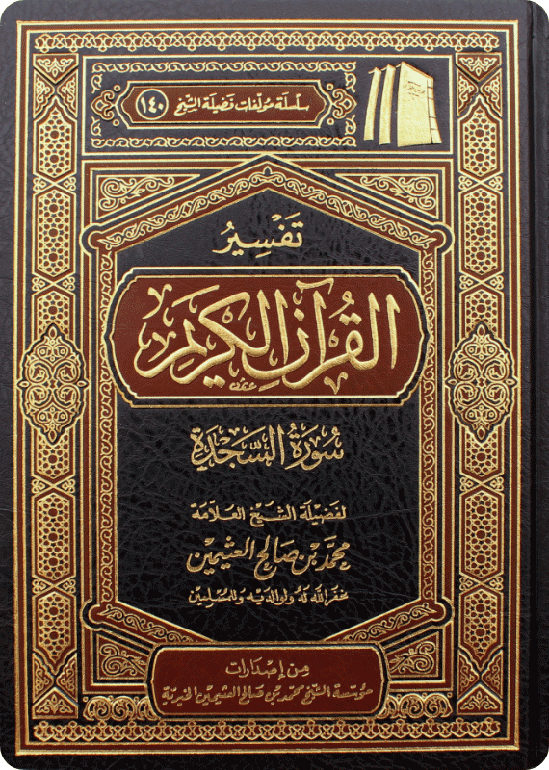 سلسلة مؤلفات فضيلة الشيخ (١٤٠)
تَفْسِيرُ
القُرآنِ الكَرِيمِ
سُورَةُ السَّجْدَةِ
لفَضِيلَة الشَّيْخ العَلَّامَة
محمَّد بْن صَالح العثيمين
غفر الله له ولوالديه وللمسلمين
مِن إصدارات
مؤسسة الشيخ محمد بن صالح العثيمين الخيرية